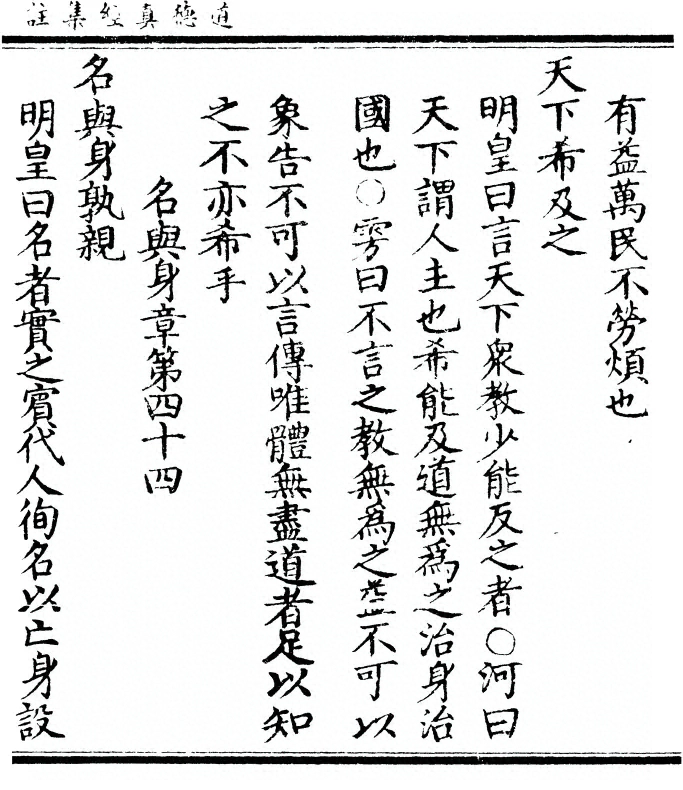 道德真經集註
有益萬民不勞煩也
天下希及之
明皇曰言天下衆教少能反之者○河曰
天下謂人主也希能及道無爲之治身治
國也○雱曰不言之教無爲之益不可以
象告不可以言傳唯體無盡道者足以知
之不亦希乎
名與身章第四十四
名與身孰親
明皇曰名者實之賓代人徇名以亡身設